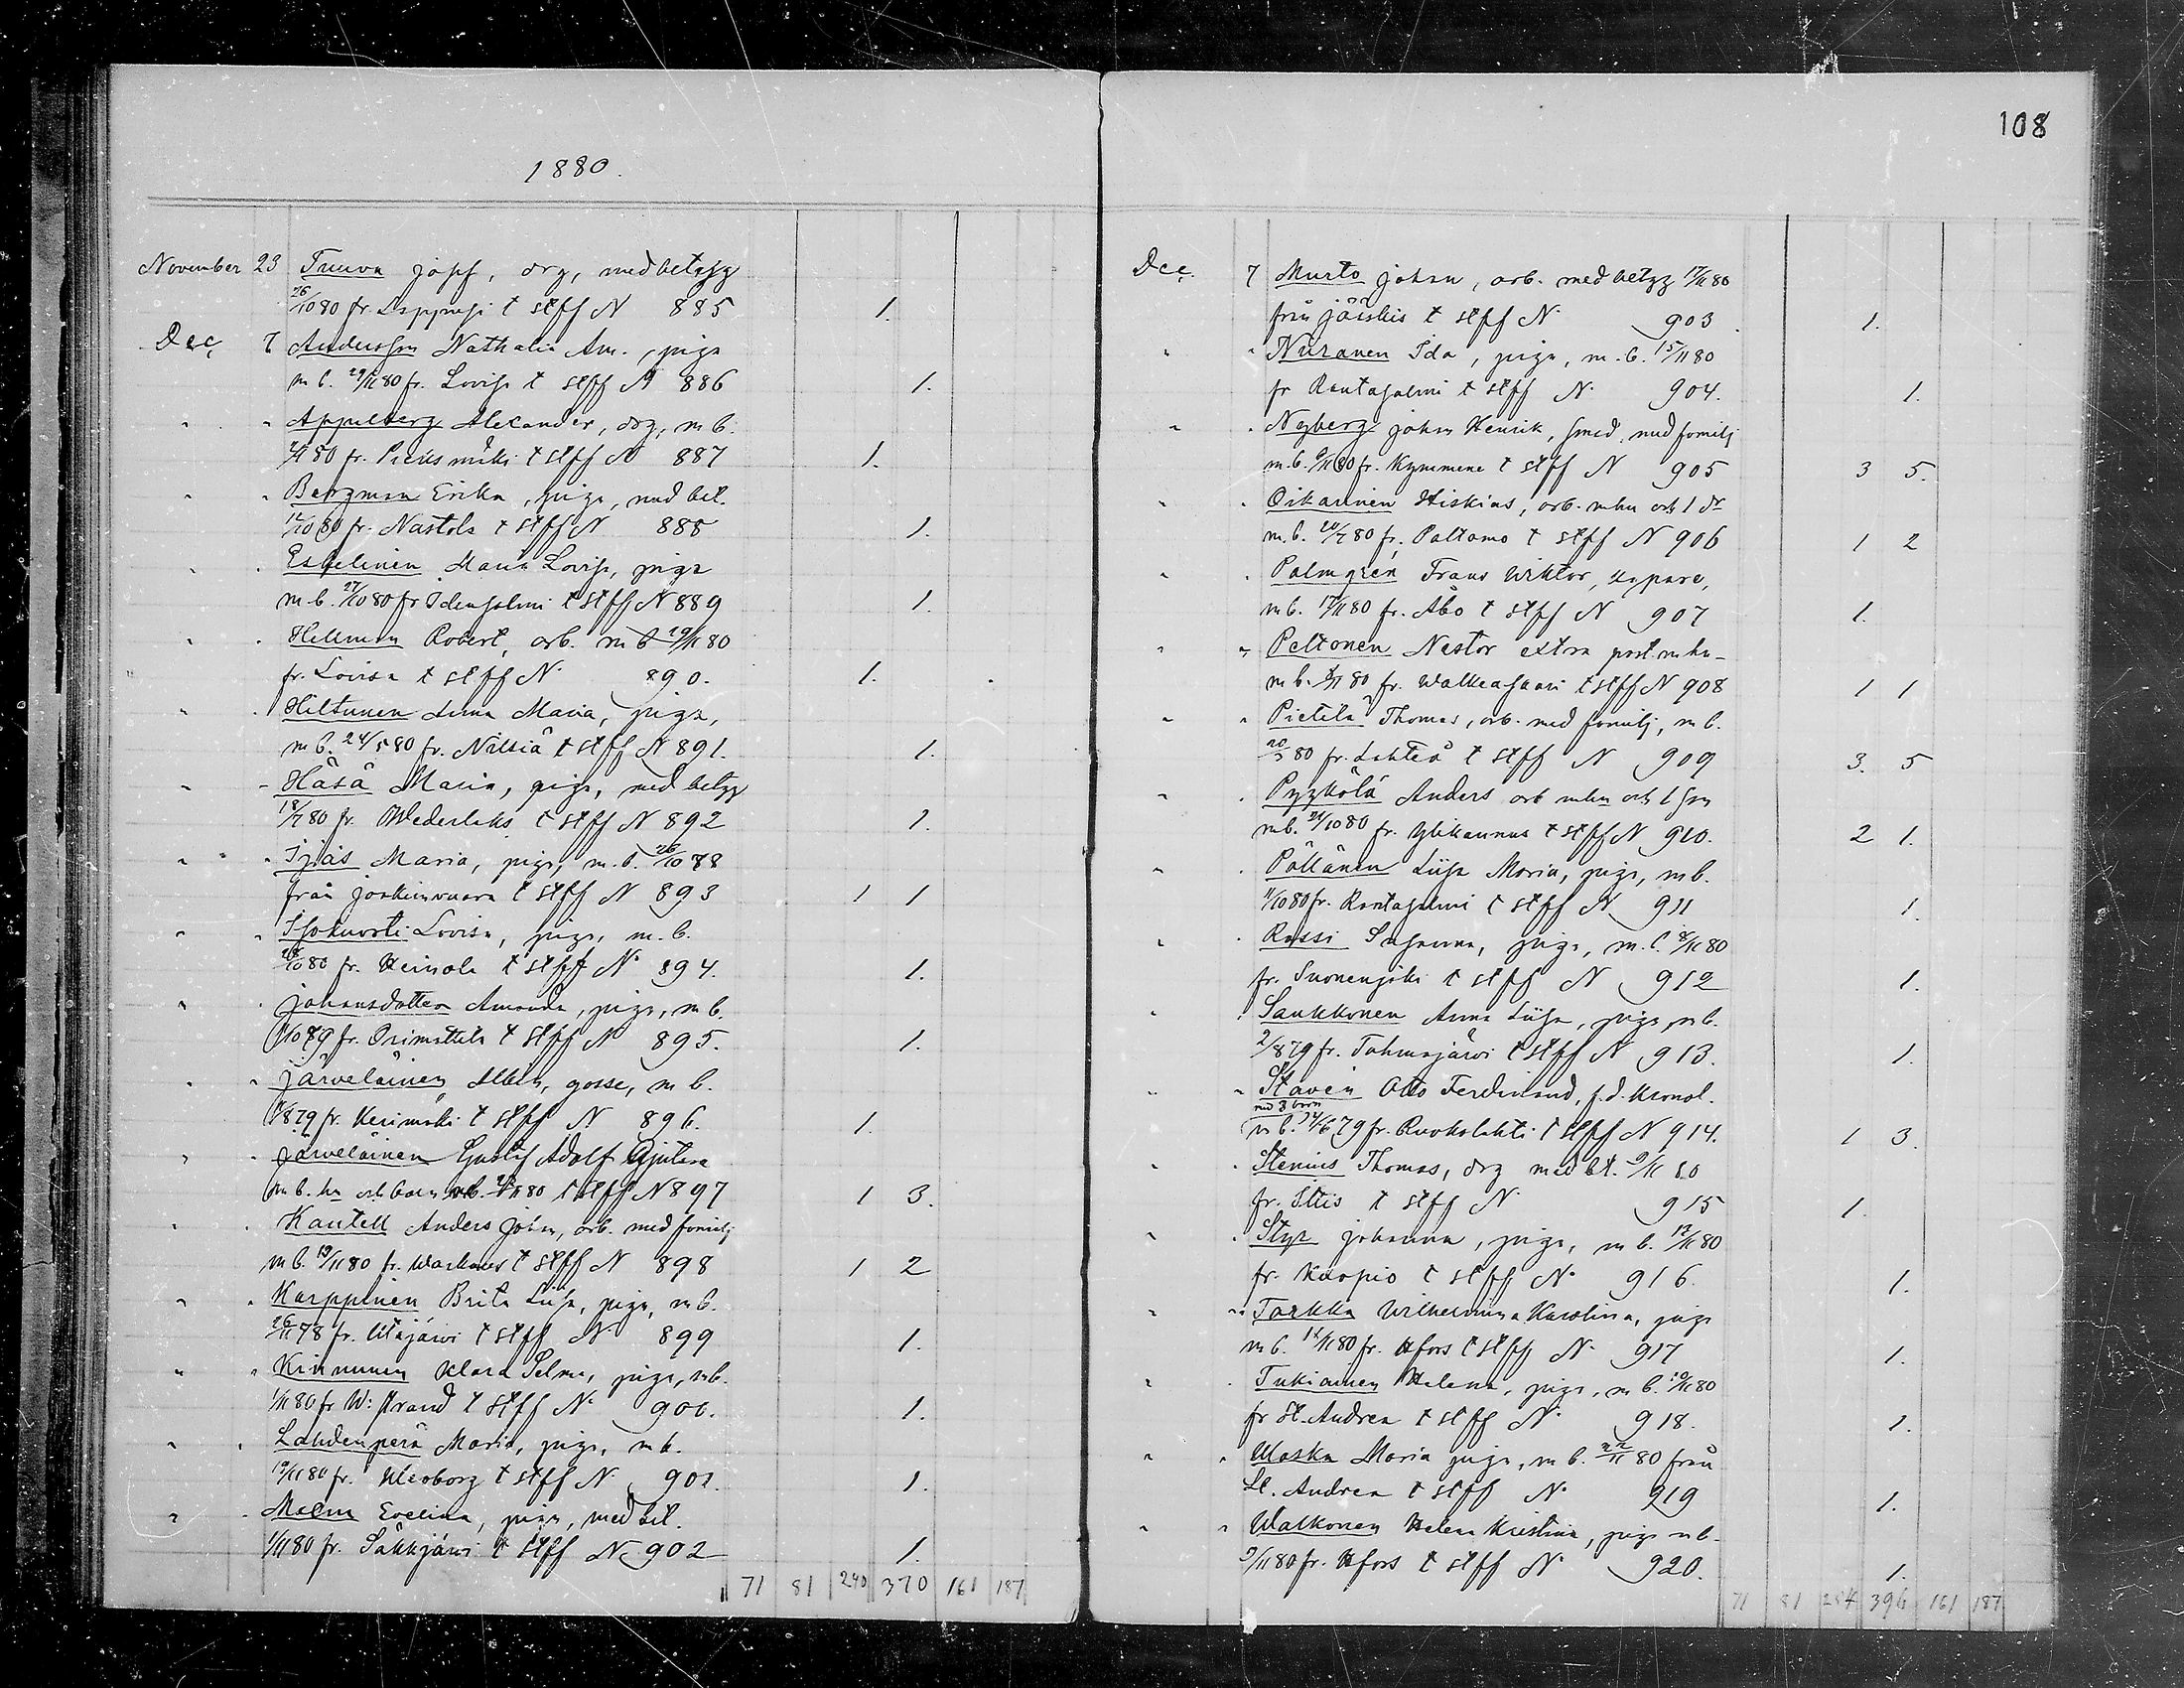 108
1880.
November 23 Tuuva Josef, drg, med betygg
26/10 80 fr. Lappvesi t stff N 885 1.
Dec. 7 Andersson Nathalia Am., piga
m b. 29/11 80 fr. Lovisa t stff N 886 1.
" " Appelberg Alexander, drg, m b.
2/11 80 fr. Pieksmäki t stff N 887 1.
" " Bergman Erika, piga, med bet.
12/10 80 fr. Nastola t stff N 888 1.
" " Eskelinen Maria Lovisa, piga
m b. 27/10 80 fr Idensalmi t stff N 889 1.
" " Hellman Robert, arb. m b 29/11 80
fr. Lovisa t stff N. 890. 1.
" " Hiltunen Anna Maria, piga,
m b. 24/5 80 fr. Nilsiä t stff N 891. 1.
" " Häsä Maria, piga, med betyg
18/9 80 fr. Wederlaks t stff N 892 1.
" " Ijäs Maria, piga, m. b. 26/10 78
från Jockimvaara t stff N 893 1 1
" " Isokuorti Lovisa, piga, m. b.
28/10 80 fr. Heinola t stff N. 894. 1.
" " Johansdotter Amanda, piga, m b.
1/10 79 fr. Orimattila t stff N 895. 1.
" " Järveläinen Albin, gosse, m b.
1/8 79 fr. Kerimäki t stff N 896. 1.
" " Järveläinen Gustaf Adolf Gjutare
m b. hu och barn m b. 2/11 80 t stff N 897 1 3.
" " Kantell Anders Johan, arb. med familj
m b. 13/11 80 fr. Warkaus t stff N 898 1 2
" " Karppinen Brita Liisa, piga, m b.
26/11 78 fr. Utajärvi t stff N. 899 1.
" " Kinnunen Klara Selma, piga, m b.
1/11 80 fr W: strand t stff N. 900. 1.
" " Lahdenperä Maria, piga, m b.
19/11 80 fr. Uleoborg t stff N. 901. 1.
" " Malm Evelina, piga, med bet.
1/11 80 fr. Säkkjärvi t stff N. 902 1.
71 81 240 370 161 187
Dec. 7 Murto Johan, arb. med betyg 17/11 80
från Jääskis t stff N. 903 1.
" " Nuranen Ida, piga, m. b. 15/11 80
fr Rantasalmi t stff N. 904. 1.
" " Nyberg Johan Henrik, smed, med familj
m. b. 9/11 80 fr. Kymmene t stff N 905 3 5.
" " Oikarinen Hiskias, arb. m hu och 1 dr
m. b. 20/9 80 fr. Paltamo t stff N 906 1 2
" " Palmgren Frans Wiktor, kypare,
m b. 17/11 80 fr. Åbo t stff N 907 1.
" " Peltonen Nestor extra post. m hu
m b. 2/11 80 fr. Walkeasaari t stff N 908 1 1
" " Pietilä Thomas, arb. med familj, m b.
20/3 80 fr. Lahteå t stff N 909 3. 5
" " Pyykölä Anders arb m hu och 1 son
m b. 21/10 80 fr. Ylikannus t stff N 910. 2 1.
" " Pöllänen Liisa Maria, piga, m b.
11/10 80 fr. Rantasalmi t stff N 911 1.
" " Rossi Susanna, piga, m. b. 8/11 80
fr. Suonenjoki t stff N 912 1.
" " Saukkonen Anna Liisa, piga, m b.
2/8 79 fr. Tohmajärvi t stff N 913. 1.
" " Stavén Otto Ferdinand, f. d. kronol.
med 3 barn
m b. 24/6 79 fr. Ruokolahti t stff N 914. 1 3.
" " Stenius Thomas, drg med bt. 9/11 80
fr. Ittis t stff N. 915 1.
" " Styr Johanna, piga, m b. 12/11 80
fr. Kuopio t stff N. 916. 1.
" " Torkka Wilhelmina Karolina, piga
m b. 14/11 80 fr. Hfors t stff N. 917 1.
" " Tukiainen Helena, piga, m b. 19/11 80
fr St. Andrea t stff N. 918. 1.
" " Waska Maria piga, m b. 22/11 80 från
St. Andrea t stff N. 919 1.
" " Walkonen Helena Kristina, piga m b.
9/11 80 fr. Hfors t stff N. 920. 1.
71 81 254 396 161 187